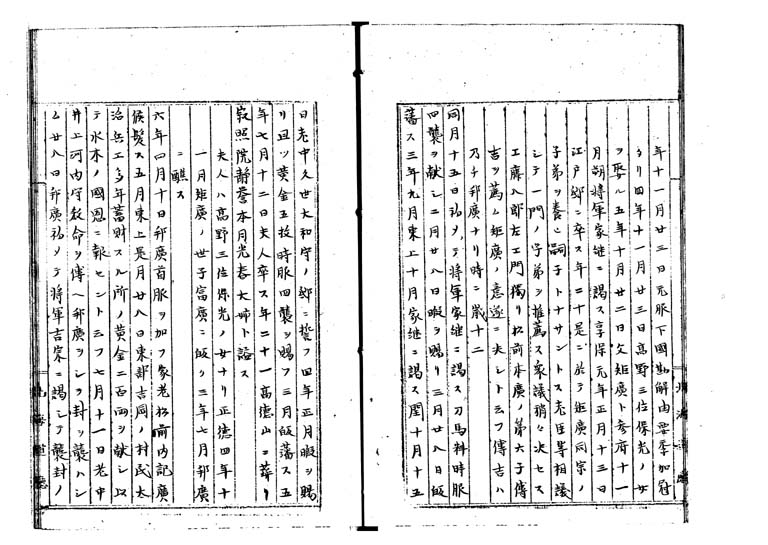 年十一月廿三日元服下國勘解由要季加冠
タリ四年十一月廿三日高野三位保光ノ女
ヲ娶ル五年十月廿二日父矩廣ト参府十一
月朔将軍家継ニ謁ス享保元年正月十三日
江戸邸ニ卒ス年二十是ニ於テ矩廣同宗ノ
子弟ヲ養ヒ嗣子トナサントス老臣等相議
シテ一門ノ子弟ヲ推薦ス衆議稍ニ决セス
工廣八郎左エ門獨リ松前本廣ノ第六子傳
吉ヲ薦ム矩廣ノ意遂ニ决シト云フ傳吉ハ
乃チ邦廣ナリ時ニ歳十二
同月十五日初メテ将軍家継ニ謁ス刀馬料時服
四襲ヲ献シ二月廿八日暇ヲ賜リ三月廿八日皈
藩ス三年九月東上十月家継ニ謁ス閏十月十五
日老中久世大和守ノ邸ニ誓フ四年正月暇ヲ賜
リ且ツ黄金五枚時服四襲ヲ賜フ三月皈藩ス五
年七月十二日夫人卒ス年二十一高徳山ニ葬リ
寂照院静誉本月光春大姉ト諡ス
夫人ハ高野三位保光ノ女ナリ正徳四年十
一月矩廣ノ世子富廣ニ皈ク三年七月邦廣
ニ醮ス
六年四月十日邦廣首服ヲ加フ家老松前内記廣
候髪ス五月東上是月廿八日東部吉岡ノ村民太
治兵エ多年蓄財スル所ノ黄金二百両ヲ献シ以
テ水木ノ國恩ニ報セントス云フ七月十一日老中
井上河内守教命ヲ傳ヘ邦廣ヲシテ封ヲ襲ハシ
ム廿八日邦廣初メテ将軍吉宗ニ謁シテ襲封ノ